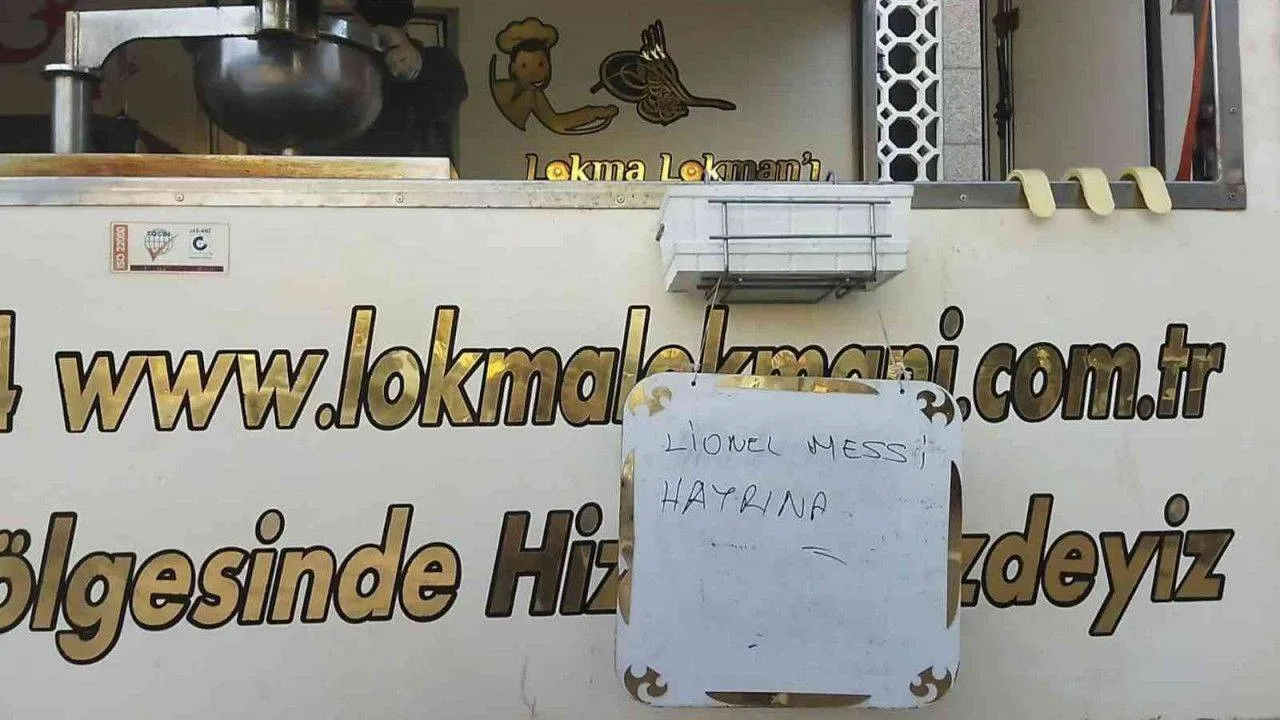 Lokma Lokman'ı
ISO 22000
JAS-ANZ
4 www.lokmalokmani.com.tr
LİONEL MESSİ
HAYRINA
ölgesinde Hiz zdeyiz